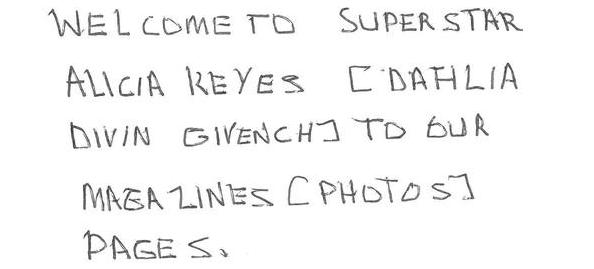 WELCOME TO SUPERSTAR
ALICIA KEYES [DAHLIA
DIVIN GIVENCH] TO OUR
MAGAZINES [PHOTOS]
PAGES.